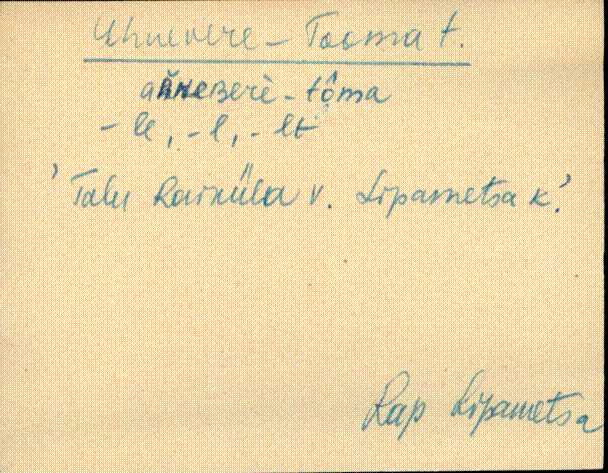 Ahnevere - Tooma t.
aȟneʙerè - tô̭ma
- le, - l, - lt
' Talu Raiküla v. Lipametsa k.'
Rap Lipametsa